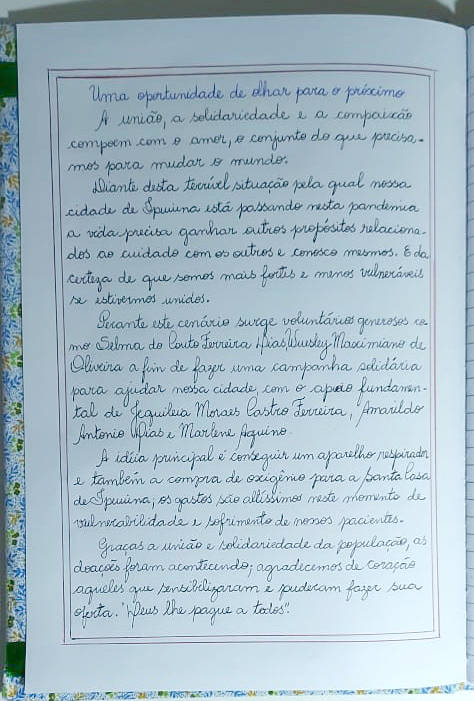 Uma oportunidade de olhar para o próximo
A união, a solidariedade e a compaixão
compoem com o amor, o conjunto do que precisa-
mos para mudar o mundo.
Diante desta terrível situação pela qual nossa
cidade de Ipuiuna está passando nesta pandemia
a vida precisa ganhar outros propósitos relaciona-
dos ao cuidado com os outros e conosco mesmos. E da
certeza de que somos mais fortes e menos vulneráveis
se estivermos unidos.
Perante este cenário surge voluntários generosos co-
mo Selma do Couto Ferreira Dias, Wuesley Maximiano de
Oliveira a fim de fazer uma campanha solidária
para ajudar nossa cidade, com o apoio fundamen-
tal de Jequileia Moraes Castro Ferreira, Amarildo
Antonio Dias e Marlene Aquino.
A idéia principal é conseguir um aparelho respirador
e também a compra de oxigênio para a Santa Casa
de Ipuiuna, os gastos são altíssimos neste momento de
vulnerabilidade e sofrimento de nossos pacientes.
Graças a união e solidariedade da população, as
doações foram acontecendo; agradecemos de coração
aqueles que sensibilizaram e puderam fazer sua
oferta. "Deus lhe pague a todos".